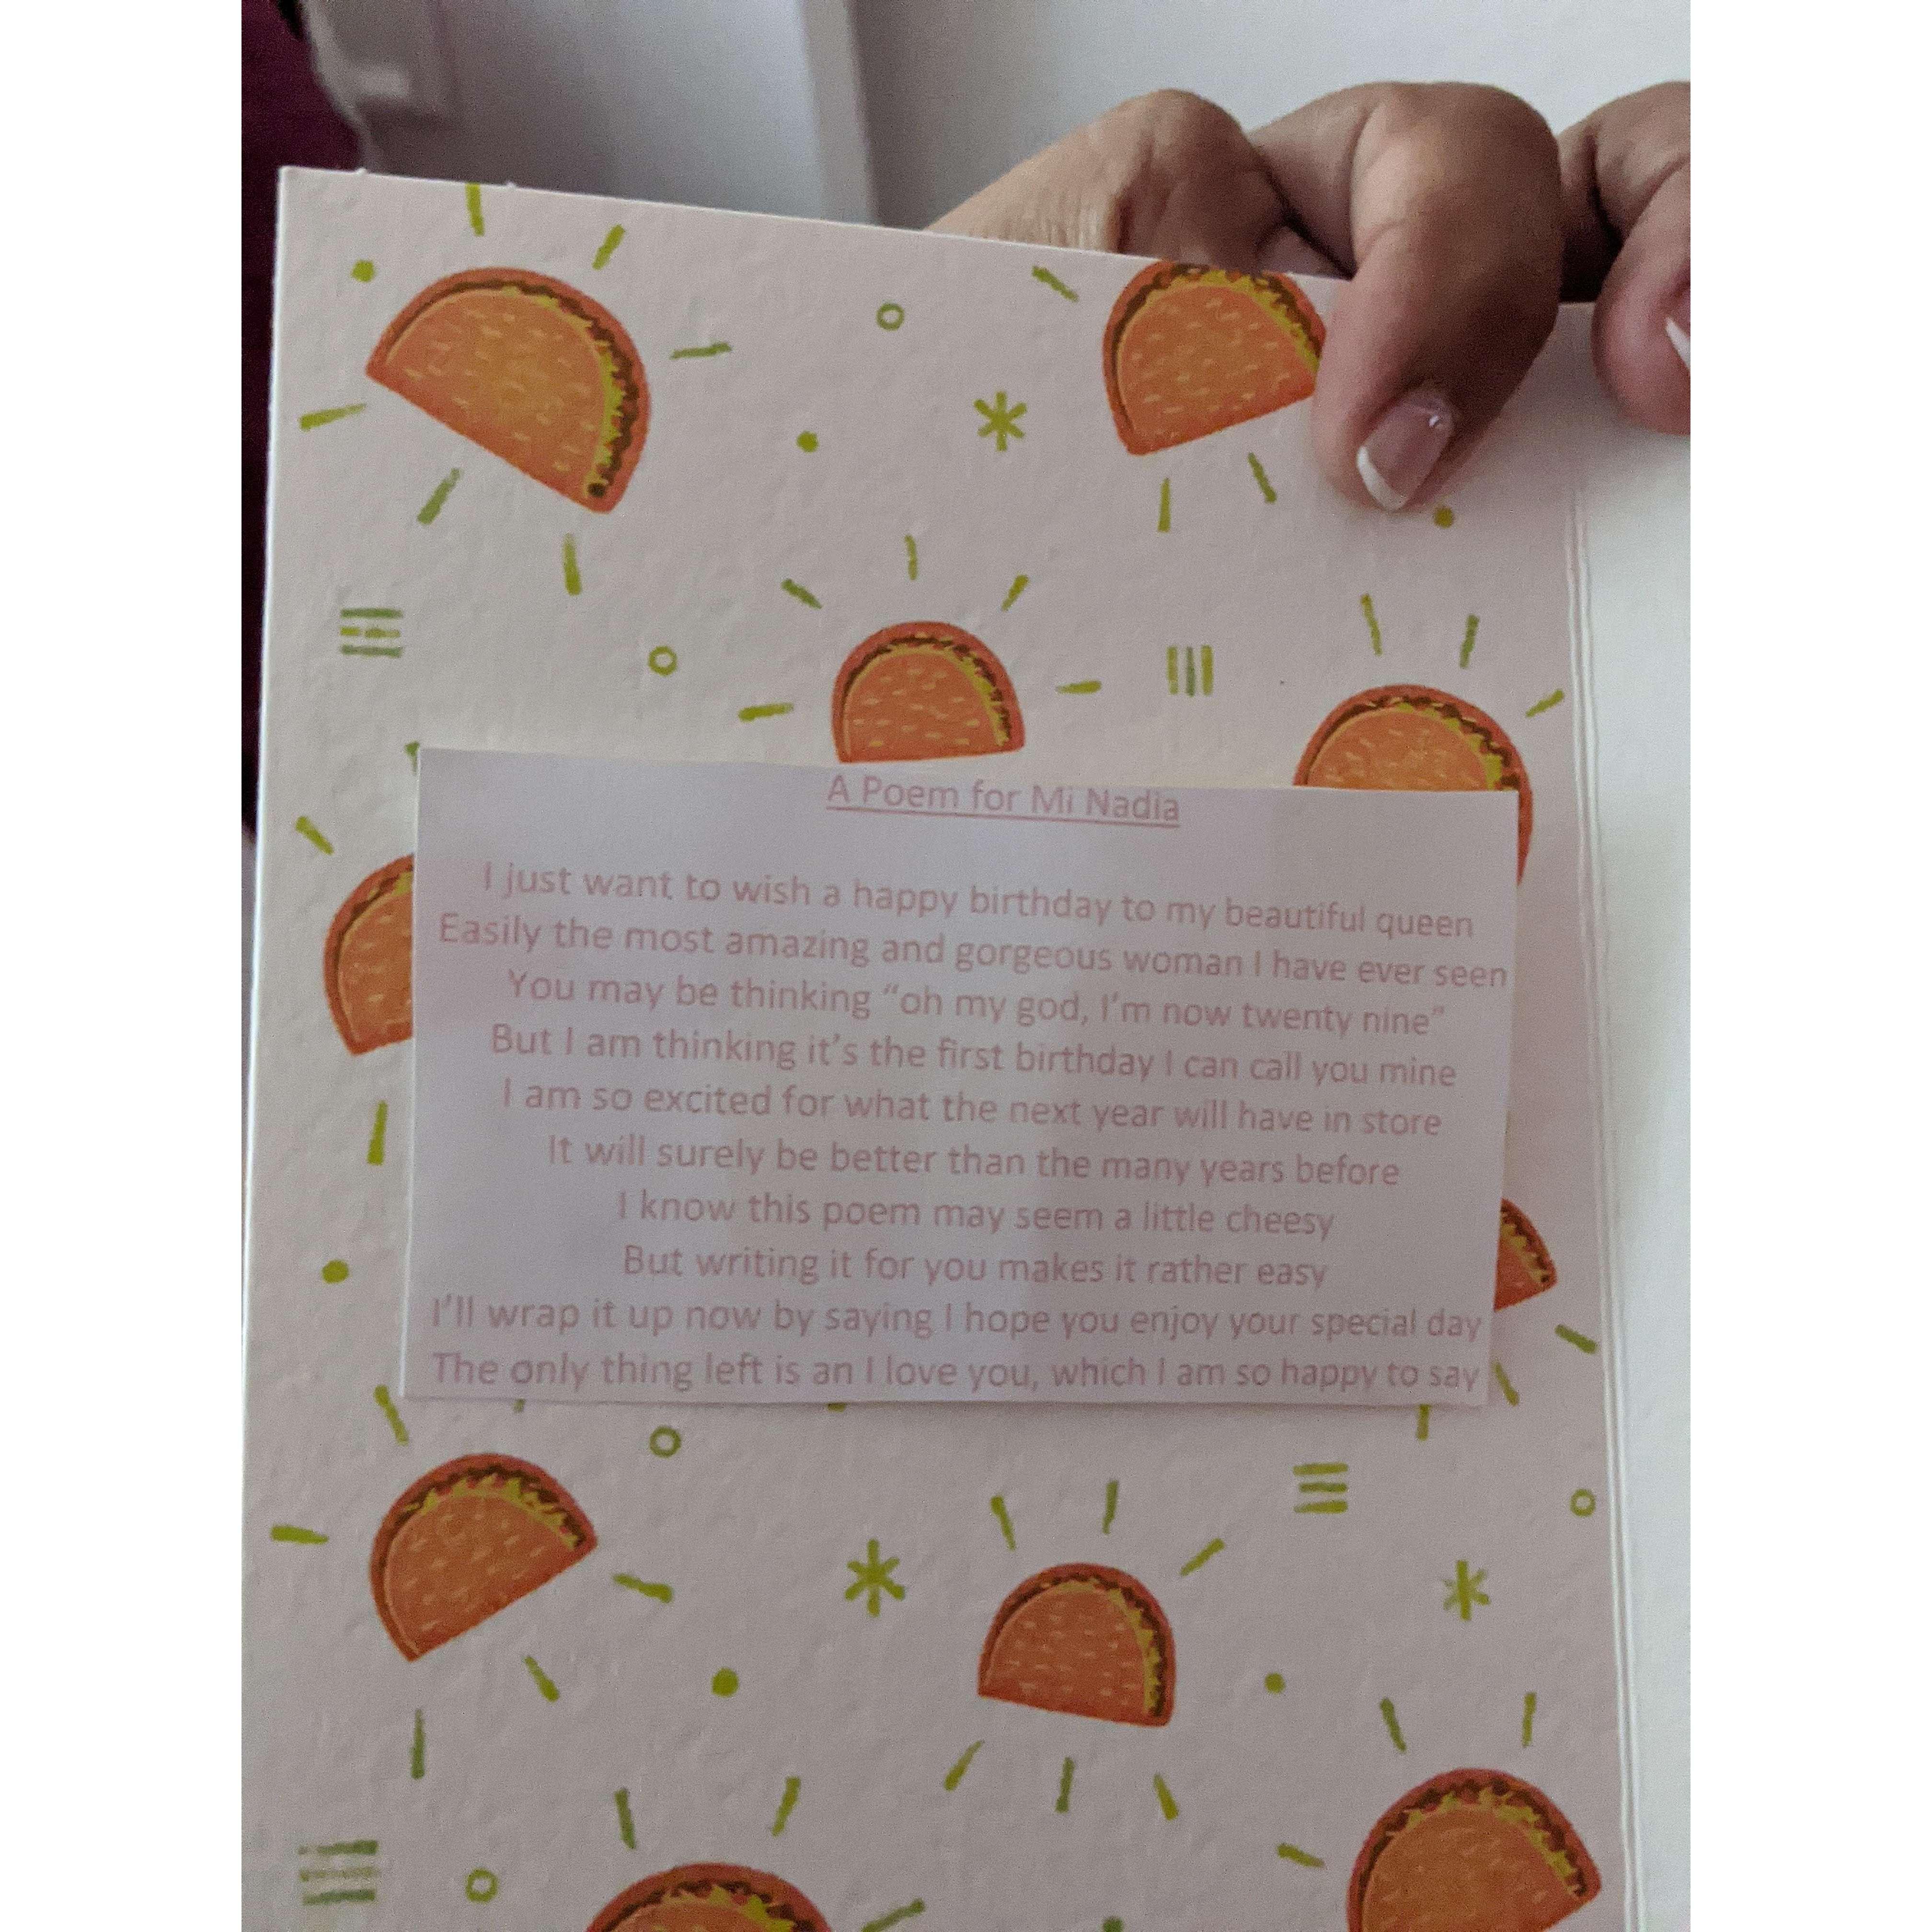 A Poem for Mi Nadia
I just want to wish a happy birthday to my beautiful queen
Easily the most amazing and gorgeous woman I have ever seen
You may be thinking “oh my god, I’m now twenty nine”
But I am thinking it’s the first birthday I can call you mine
I am so excited for what the next year will have in store
It will surely be better than the many years before
I know this poem may seem a little cheesy
But writing it for you makes it rather easy
I’ll wrap it up now by saying I hope you enjoy your special day
The only thing left is an I love you, which I am so happy to say